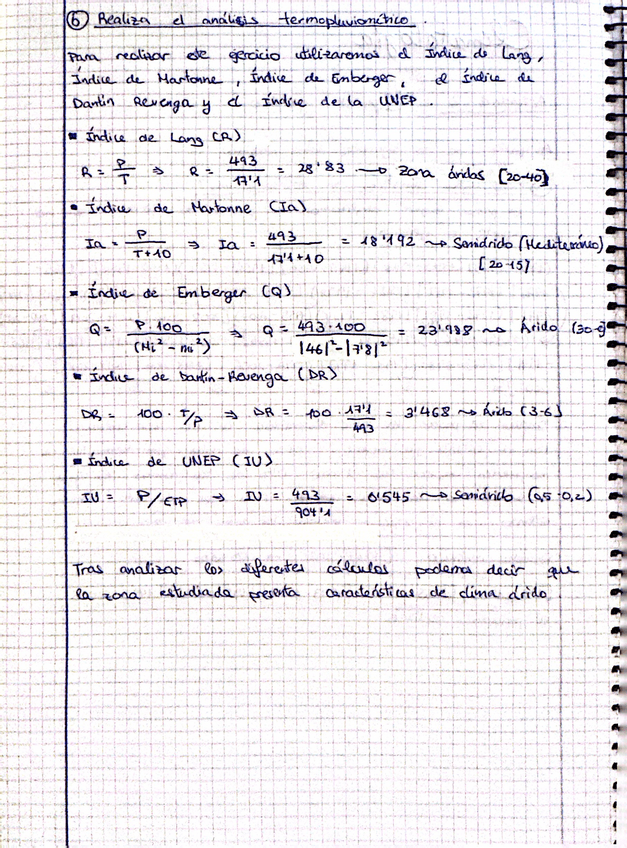 ⑥ Realiza el análisis termopluviométrico.
Para realizar este ejercicio utilizaremos el Índice de Lang,
Índice de Martonne, Índice de Emberger, el Índice de
Dantín Revenga y el Índice de la UNEP.
▪ Índice de Lang (R)
R = P/T ⇒ R = 493/17'1 = 28'83 → Zona áridas [20-40]
• Índice de Martonne (Ia)
Ia = P/T+10 ⇒ Ia = 493/17'1+10 = 18'192 ⇝ Semiárido (Mediterráneo)
[20-15]
▪ Índice de Emberger (Q)
Q = P·100/(Mi²-mi²) ⇒ Q = 493·100/|46|²-|7'8|² = 23'988 ⇝ Árido (30-
▪ Índice de Dantín-Revenga (DR)
DR = 100 · T/P ⇒ DR = 100 · 17'1/493 = 3'468 ⇝ Árido (3-6]
▪ Índice de UNEP (IU)
IU = P/ETP → IU = 493/904'1 = 0'545 ⇝ Semiárido (0,5-0,2)
Tras analizar los diferentes cálculos podemos decir que
la zona estudiada presenta características de clima árido